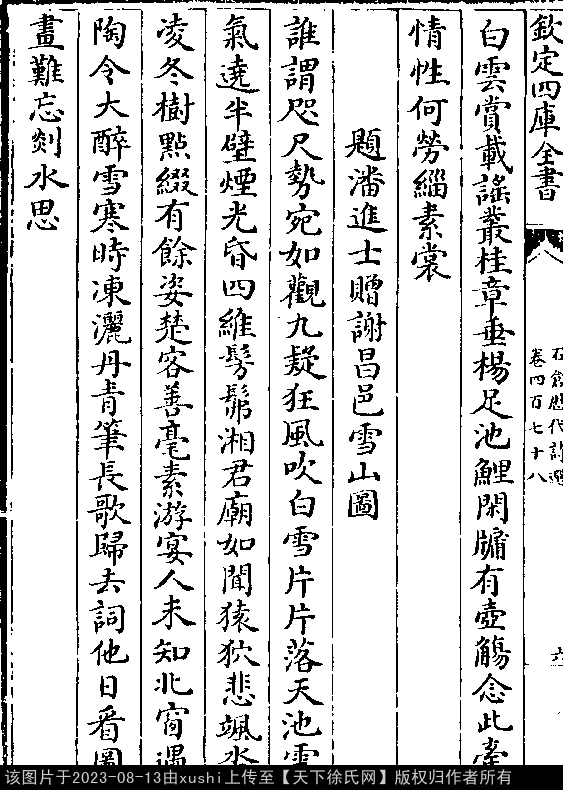 欽定四庫全書
石倉歷代詩選
卷四百七十八
六
白雲賞載謠叢桂章垂楊足池鯉閑牖有壺觴念此牽
情性何勞緇素裳
題潘進士贈謝昌邑雪山圖
誰謂咫尺勢宛如觀九疑狂風吹白雪片片落天池雲
氣遶半壁煙光昏四維髣髴湘君廟如聞猿狖悲颯
凌冬樹點綴有餘姿楚客善毫素游宴人未知北窗遇
陶令大醉雪寒時凍灑丹青筆長歌歸去詞他日看圖
畫難忘剡水思
该图片于2023-08-13由xushi上传至【天下徐氏网】版权归作者所有